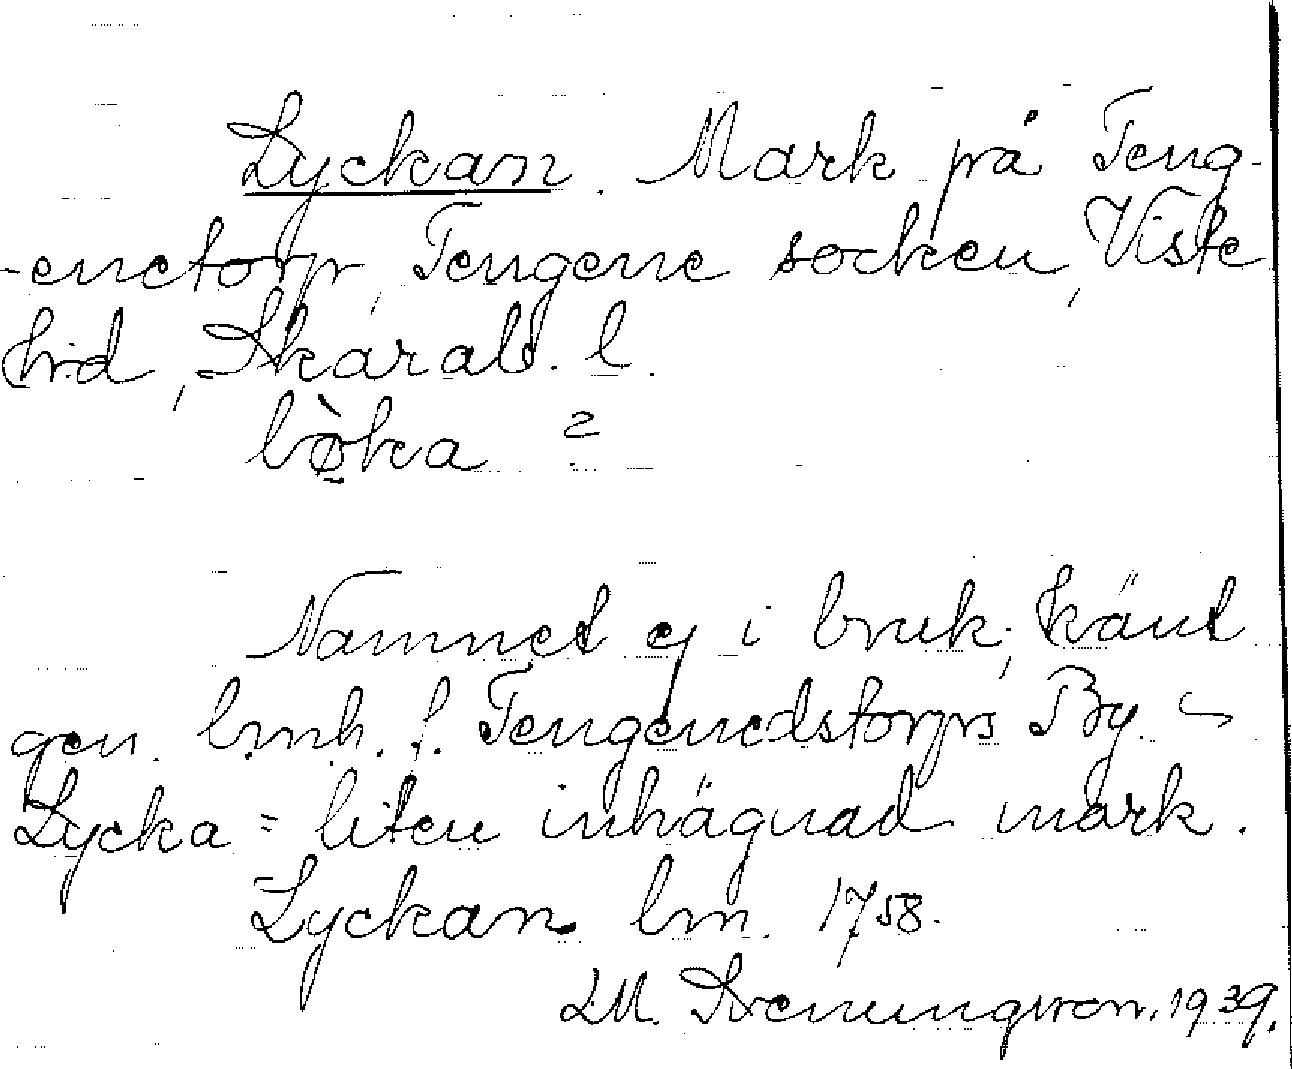 Lyckan. Mark på Teng-
-enetorp, Tengene socken, Viste
hrd, Skarab. l.
lò̤ka 2
Namnet ej i bruk; känt
gen. lmh. f. Tengenedstorps By. ~
Lycka = liten inhägnad mark.
Lyckan lm. 1758.
LM. 1939.